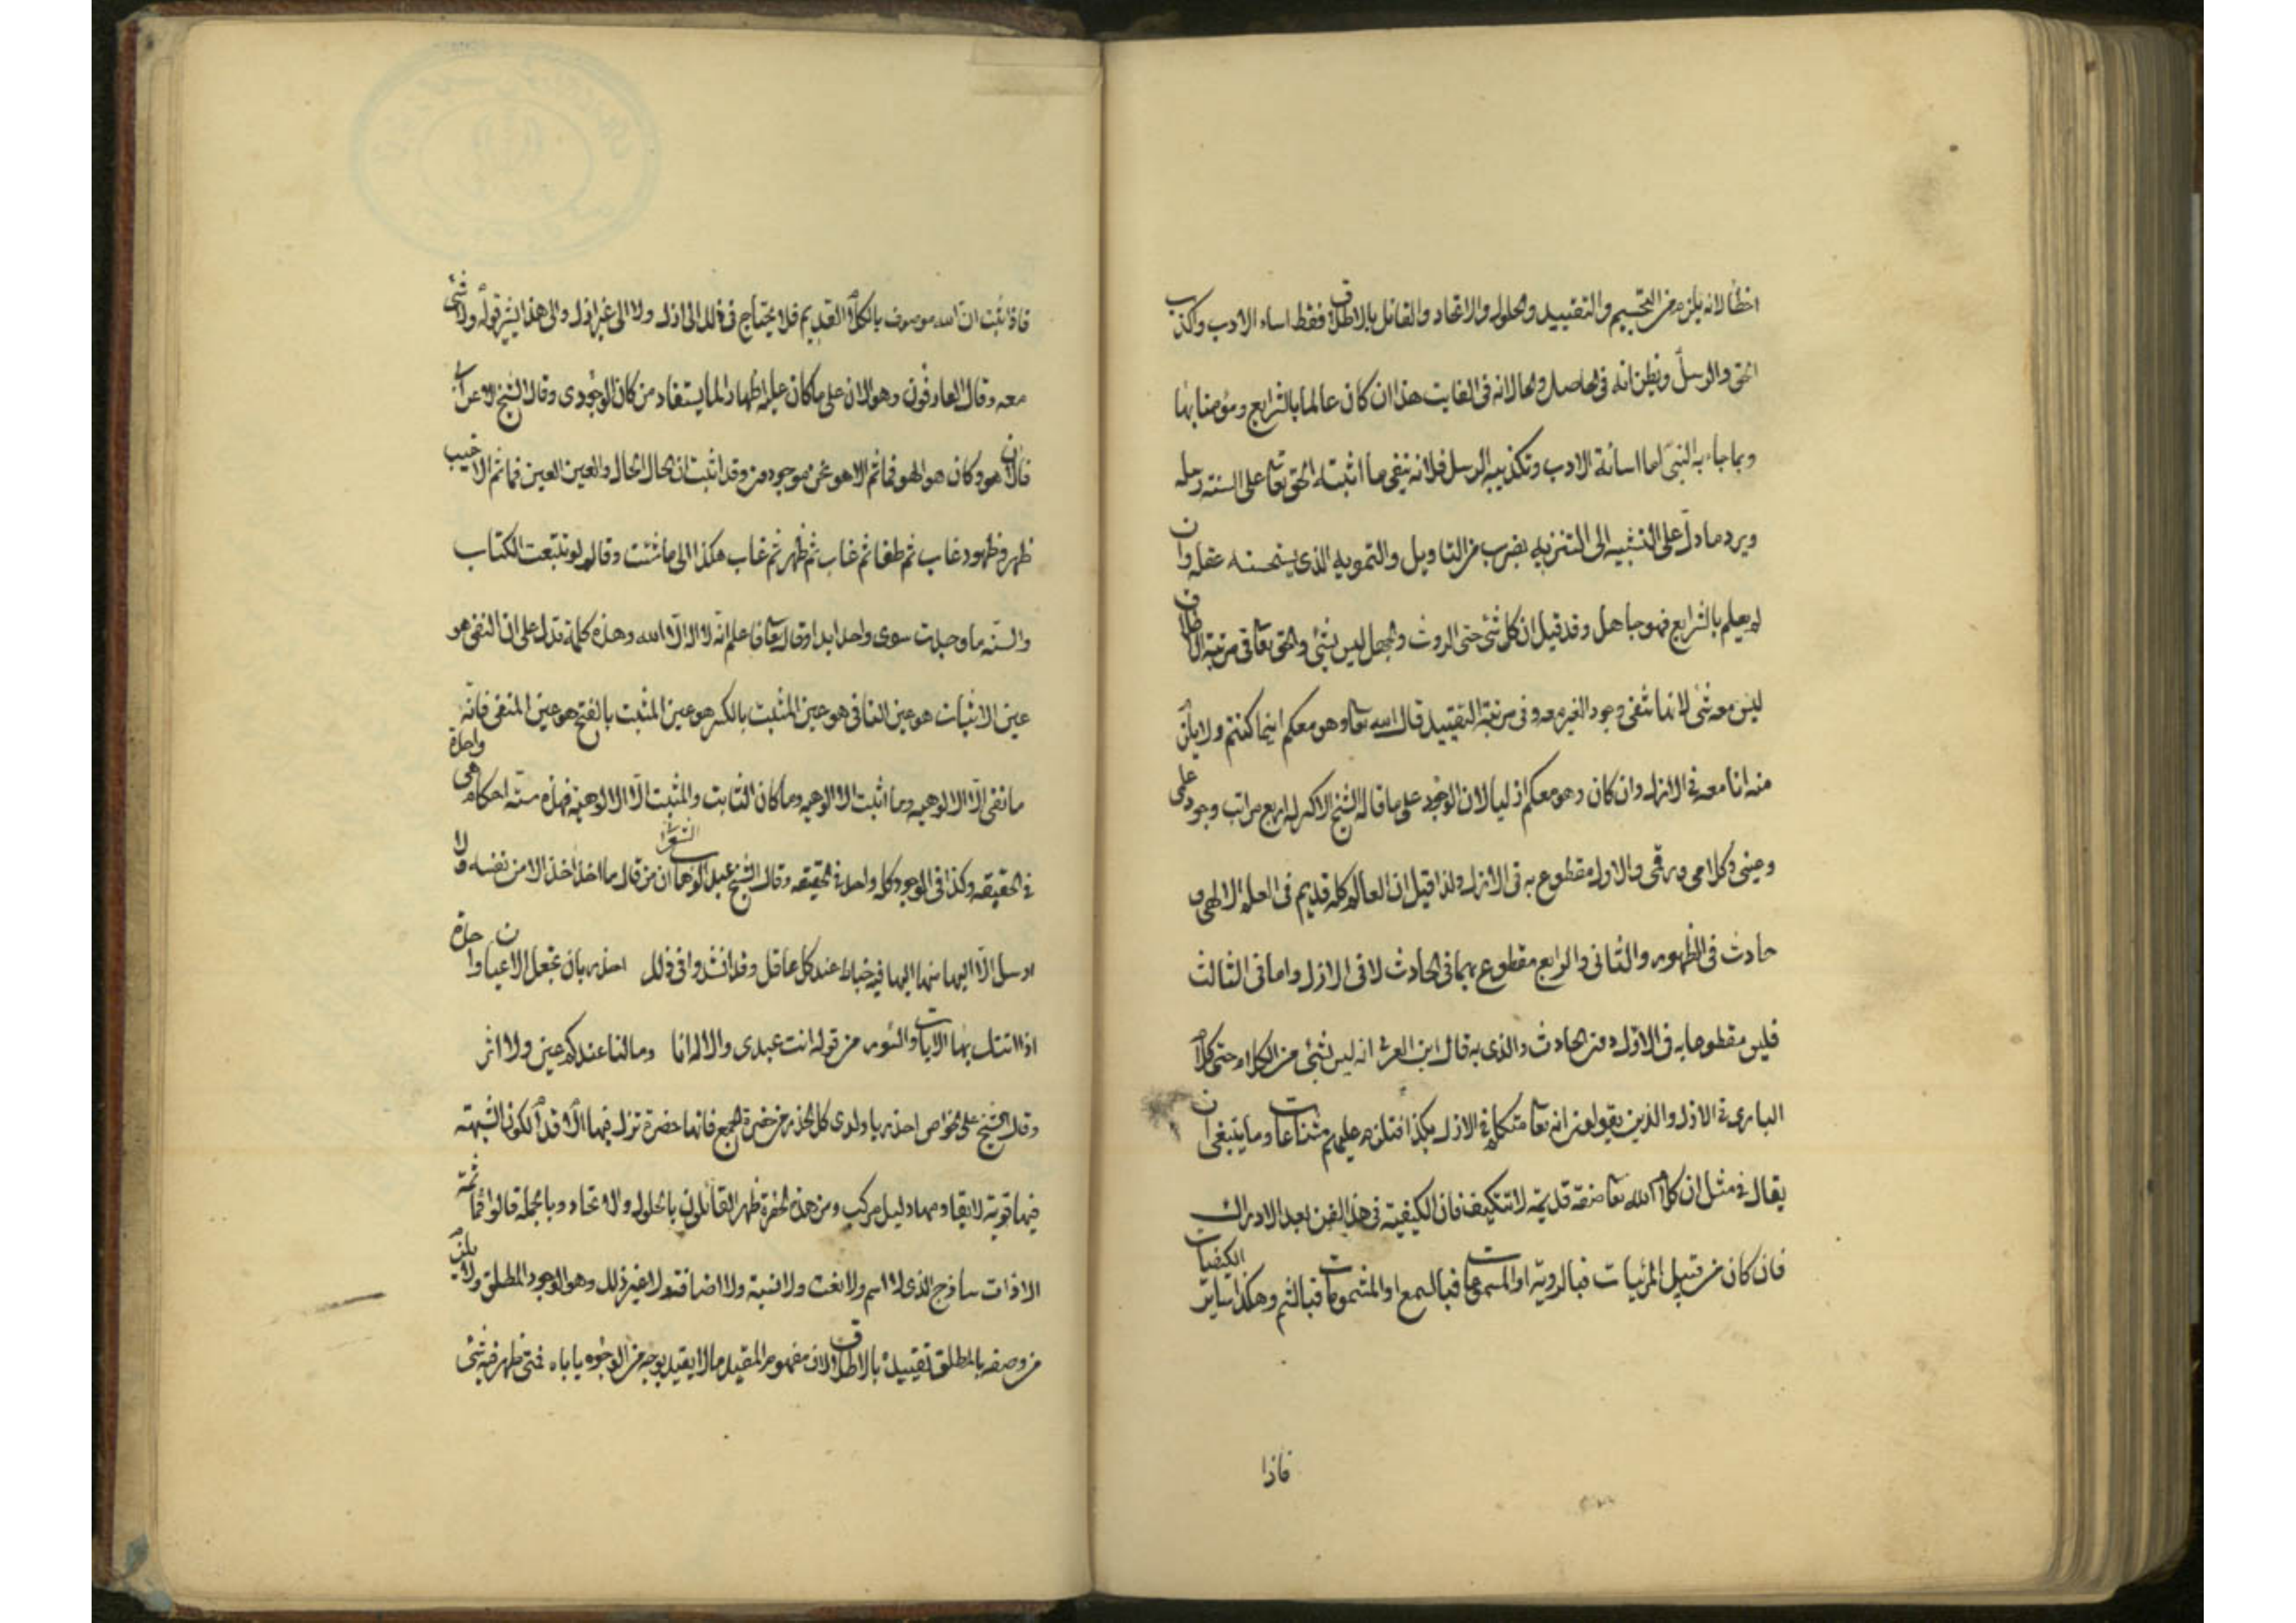 اخطأ لانه يلزم من التجسيم والتقييد والحلول والاتحاد والقائل بالاطلاق فقط اساء الادب وكذب
الحق والرسل ويظن انه في الحاصل والحال انه في الفايت هذا ان كان عالما بالشرايع ومؤمنا بها
وبما جاء به النبي اما اسائة الادب وتكذيبه الرسل فلانه ينفي ما اثبته الحق تعا على السنة رسله
ويرد ما دل على التشبيه الى التنزيه بضرب من التاويل والتمويه الذي يستحسنه عقله وان
لم يعلم بالشرايع فهو جاهل وقد قيل ان كل شئ حتى الروث والجهل ليس بشئ والحق تعا في مرتبة الاطلاق
ليس معه شئ لانها تنفي وجود الغير معه وفي مرتبة التقييد قال الله تعا وهو معكم اينما كنتم ولا يلزم
منه انا معه في الازل وان كان وهو معكم ازليا لان الوجود على ما قاله الشيخ الاكبر له اربع مراتب وجود علمي
وعيني وكلامي ورقمي والاول مقطوع به في الازل ولذا قيل ان العالم كله قديم في العلم الالهي و
حادث في الظهور والثاني والرابع مقطوع بهما في الحادث لا في الازل واما في الثالث
فليس مقطوعا به في الازل دون الحادث والذي به قال ابن العربي انه ليس بشئ من الكلام حتى كلام
الباري في الازل والذين يقولون انه تعا متكلم في الازل بكذا فتلزم عليهم شناعات وما ينبغي ان
يقال في مثل ان كلام الله تعا صفة قديمة لا تتكيف فان الكيفية في هذا الفن بعد الادراك
فان كان من قبيل المرئيات فبالروية او المسموعات فبالسمع او المشمومات فبالشم وهكذا ساير الكيفيات
فاذا
فاذا ثبت ان الله موصوف بالكلام القديم فلا يحتاج في ذلك الى ازل ولا الى غير ازل والى هذا يشير قوله ولا شئ
معه وقال العارفون وهو الان على ما كان عليه اظهارا لما يستفاد من كان الوجودي وقال الشيخ الاعرابي
فالان هو وكان هو الهو فما ثم الا هو نحن موجودون وقد اثبت ان الحال الحال والعين العين فما ثم الا غيب
ظهر وظهور غاب ثم ظهر ثم غاب ثم ظهر ثم غاب هكذا الى ما شئت وقال لو تتبعت الكتاب
والسنة ما وجدت سوى واحد ابدا وقال تعا فاعلم انه لا اله الا الله وهذه كلمة تدل على ان النفي هو
عين الاثبات هو عين النافي هو عين المثبت بالكسر هو عين المثبت بالفتح هو عين المنفي فانه
ما نفى الا الالوهيه وما اثبت الا الالوهيه وما كان الثابت والمثبت الا الالوهية فهذه ستة احكام هي واحدة
في الحقيقه وكذا في الوجود كله واحد في الحقيقه وقال الشيخ عبد الوهاب الشعراني ان من قال ما اخذ اخذ الا من نفسه ولا
ارسل الا اليها منها اليها فيه خباط عند كل عاقل وقد انشدوا في ذلك احذر بان تجعل الاعيان واحدة
اذا اتتك بها الايات والسور من قوله انت عبدي والاله انا وما لنا عندكم عين ولا اثر
وقال الشيخ على الخواص احذر يا ولدى كل الحذر من حضرة الجمع فانها حضرة تزل فيها الاقدام لكون الشبهة
فيها قوية لا يقاومها دليل مركب ومن هذه الحضرة ظهر القائلون بالحلول والاتحاد وبالجملة قالوا فما ثمة
الا ذات ساذج الذي لا اسم ولا نعت ولا نسبة ولا اضافة ولا غير ذلك وهو الوجود المطلق ولا يلزم
من وصفه بالمطلق تقييده بالاطلاق لان مفهوم المقيد مالا يقيد بوجه من الوجوه ياباه فمتى ظهر فيه شئ